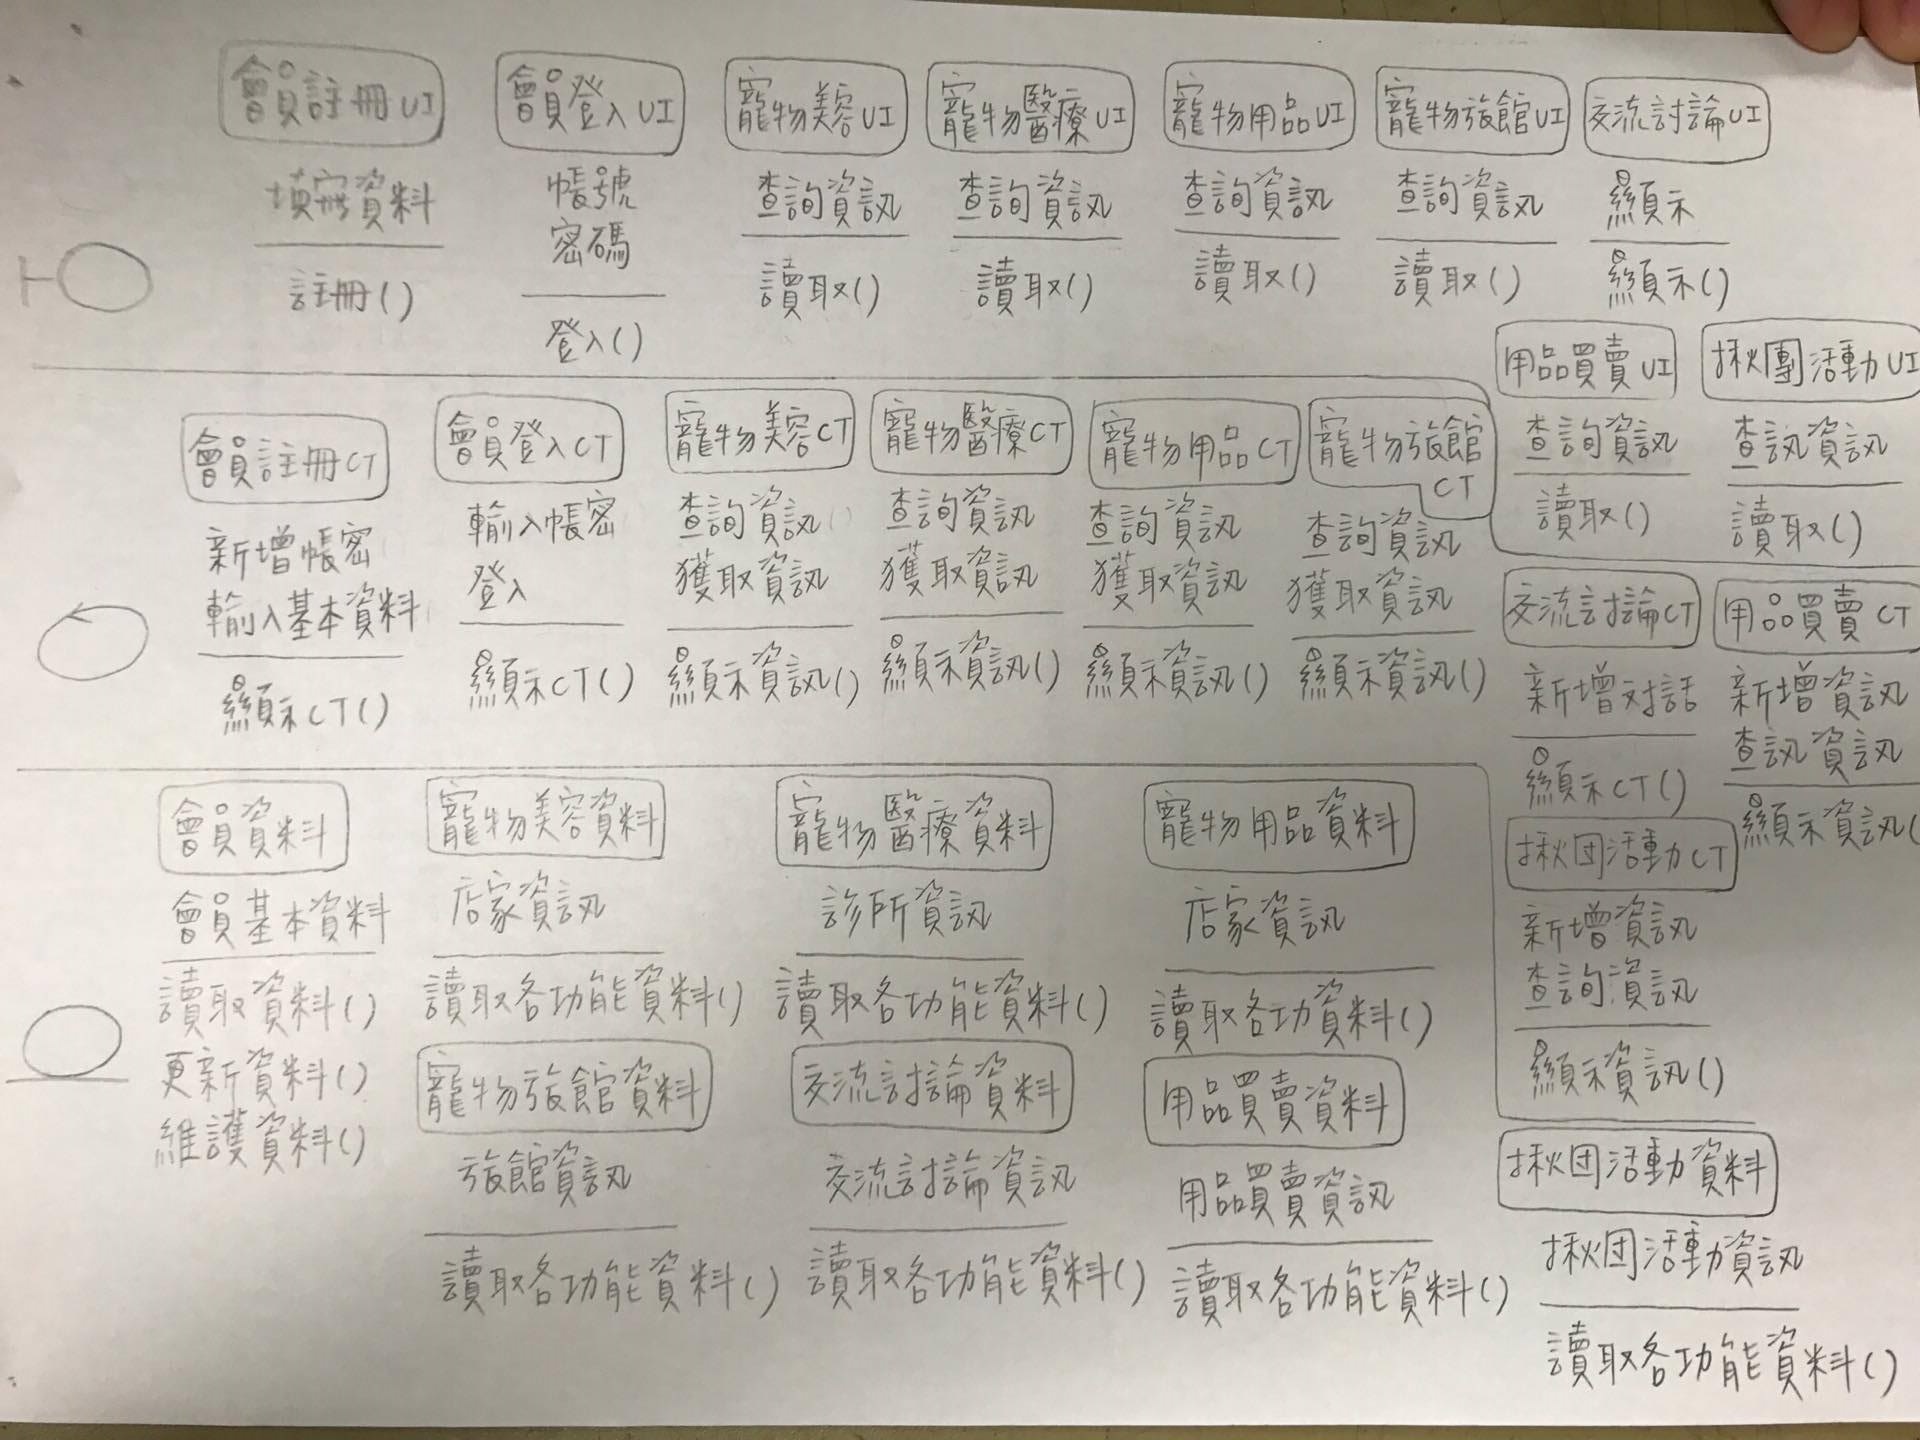 會員註冊UI
填寫資料
註冊()
會員登入UI
帳號
密碼
登入()
寵物美容UI
查詢資訊
讀取()
寵物醫療UI
查詢資訊
讀取()
寵物用品UI
查詢資訊
讀取()
寵物旅館UI
查詢資訊
讀取()
交流討論UI
顯示
顯示()
用品買賣UI
查詢資訊
讀取()
揪團活動UI
查訊資訊
讀取()
會員註冊CT
新增帳密
輸入基本資料
顯示CT()
會員登入CT
輸入帳密
登入
顯示CT()
寵物美容CT
查詢資訊
獲取資訊
顯示資訊()
寵物醫療CT
查詢資訊
獲取資訊
顯示資訊()
寵物用品CT
查詢資訊
獲取資訊
顯示資訊()
寵物旅館
CT
查詢資訊
獲取資訊
顯示資訊()
交流討論CT
新增对話
顯示CT()
用品買賣CT
新增資訊
查訊資訊
顯示資訊(
揪団活動CT
新增資訊
查詢資訊
顯示資訊()
會員資料
會員基本資料
讀取資料()
更新資料()
維護資料()
寵物美容資料
店家資訊
讀取各功能資料()
寵物醫療資料
診所資訊
讀取各功能資料()
寵物用品資料
店家資訊
讀取各功資料()
寵物旅館資料
旅館資訊
讀取各功能資料()
交流討論資料
交流討論資訊
讀取各功能資料()
用品買賣資料
用品買賣資訊
讀取各功能資料()
揪団活動資料
揪団活動資訊
讀取各功能資料()